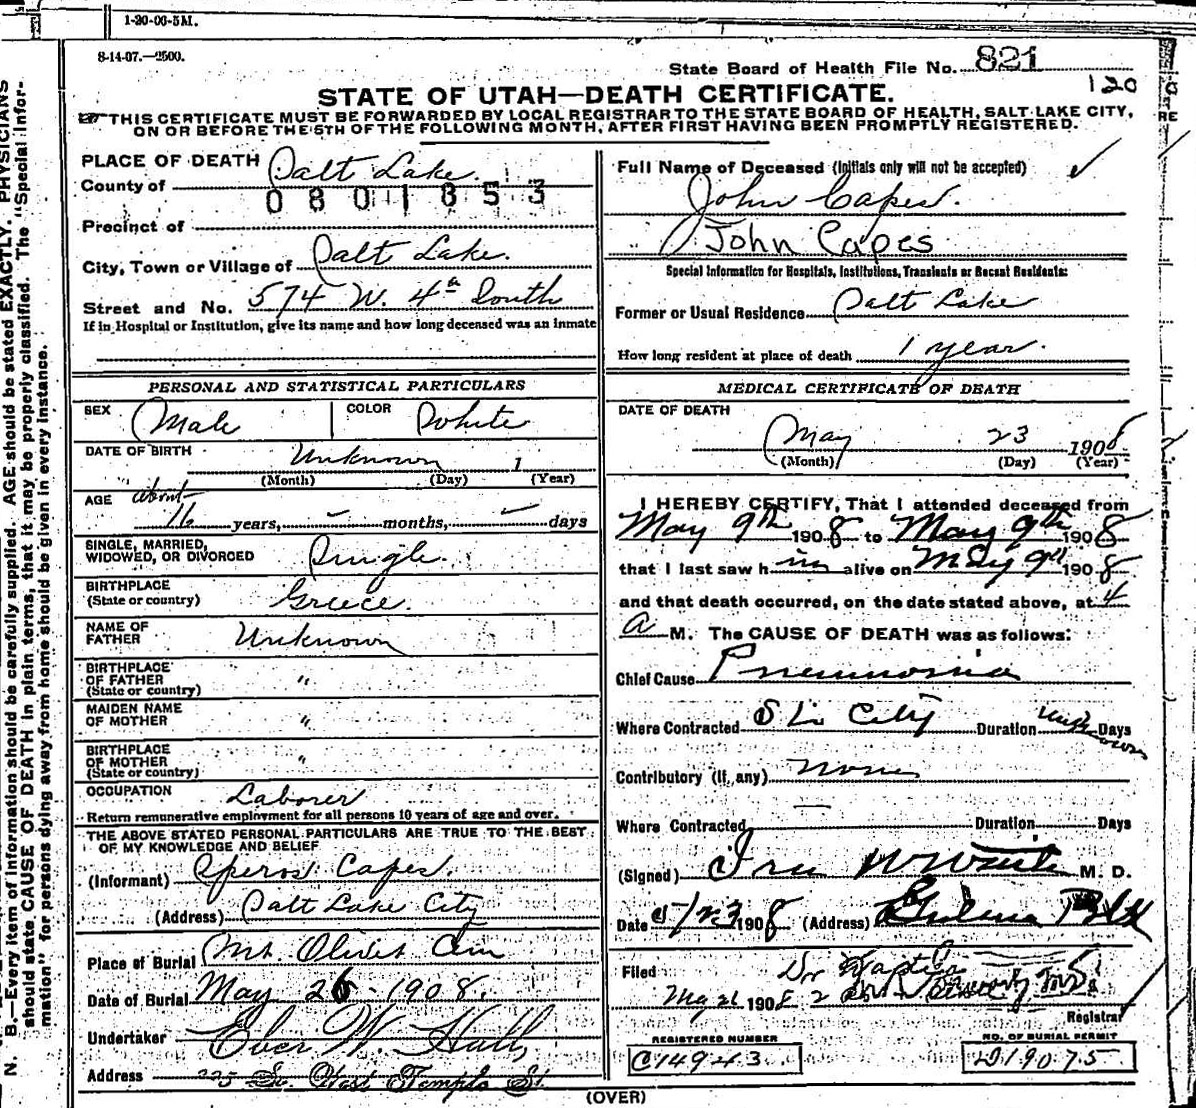 1-20-06-5M.
8-14-07.—2500.
State Board of Health File No. 821
120
STATE OF UTAH—DEATH CERTIFICATE.
THIS CERTIFICATE MUST BE FORWARDED BY LOCAL REGISTRAR TO THE STATE BOARD OF HEALTH, SALT LAKE CITY,
ON OR BEFORE THE 5TH OF THE FOLLOWING MONTH, AFTER FIRST HAVING BEEN PROMPTLY REGISTERED.
PLACE OF DEATH
County of Salt Lake.
0801853
Precinct of
City, Town or Village of Salt Lake.
Street and No. 574 W. 4th South
If in Hospital or Institution, give its name and how long deceased was an inmate
PERSONAL AND STATISTICAL PARTICULARS
SEX Male COLOR White
DATE OF BIRTH Unknown 1
(Month) (Day) (Year)
AGE about
16 years, months, days
SINGLE, MARRIED,
WIDOWED, OR DIVORCED Single.
BIRTHPLACE
(State or country) Greece.
NAME OF
FATHER Unknown
BIRTHPLACE
OF FATHER "
(State or country)
MAIDEN NAME
OF MOTHER "
BIRTHPLACE
OF MOTHER "
(State or country)
OCCUPATION Laborer
Return remunerative employment for all persons 10 years of age and over.
THE ABOVE STATED PERSONAL PARTICULARS ARE TRUE TO THE BEST
OF MY KNOWLEDGE AND BELIEF
(Informant) Speros Capes.
(Address) Salt Lake City
Place of Burial Mt. Olivet Cem
Date of Burial May 26 - 1908.
Undertaker Eber W. Hall,
Address 225 So. West Temple St.
Full Name of Deceased (Initials only will not be accepted)
John Capes.
John Capes
Special Information for Hospitals, Institutions, Transients or Recent Residents:
Former or Usual Residence Salt Lake
How long resident at place of death 1 year.
MEDICAL CERTIFICATE OF DEATH
DATE OF DEATH
May 23 1908
(Month) (Day) (Year)
I HEREBY CERTIFY, That I attended deceased from
May 9th 1908 to May 9th 1908
that I last saw him alive on May 9th 1908
and that death occurred, on the date stated above, at 4
A M. The CAUSE OF DEATH was as follows:
Chief Cause Pneumonia
Where Contracted S L. City Duration Unknown Days
Contributory (if any) none
Where Contracted — Duration Days
(Signed) Ira M. D.
Date 5/23 1908 (Address)
Filed
May 26 1908
Registrar
REGISTERED NUMBER
C14943
NO. OF BURIAL PERMIT
D19075
(OVER)
N. B.—Every item of information should be carefully supplied. AGE should be stated EXACTLY. PHYSICIANS
should state CAUSE OF DEATH in plain terms, that it may be properly classified. The "Special Infor-
mation" for persons dying away from home should be given in every instance.
RE